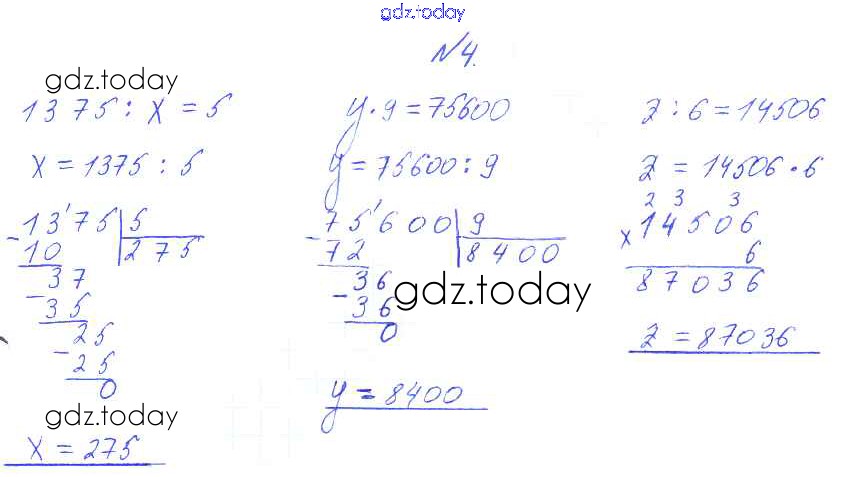 gdz.today
N4.
gdz.today
1375 : x = 5
x = 1375 : 5
- 1375 | 5
10 | 275
- 37
35
- 25
25
0
gdz.today
x = 275
y · 9 = 75600
y = 75600 : 9
- 75600 | 9
72 | 8400
- 36
36
0
gdz.today
y = 8400
z : 6 = 14506
z = 14506 · 6
2 3 3
x 14506
6
87036
z = 87036